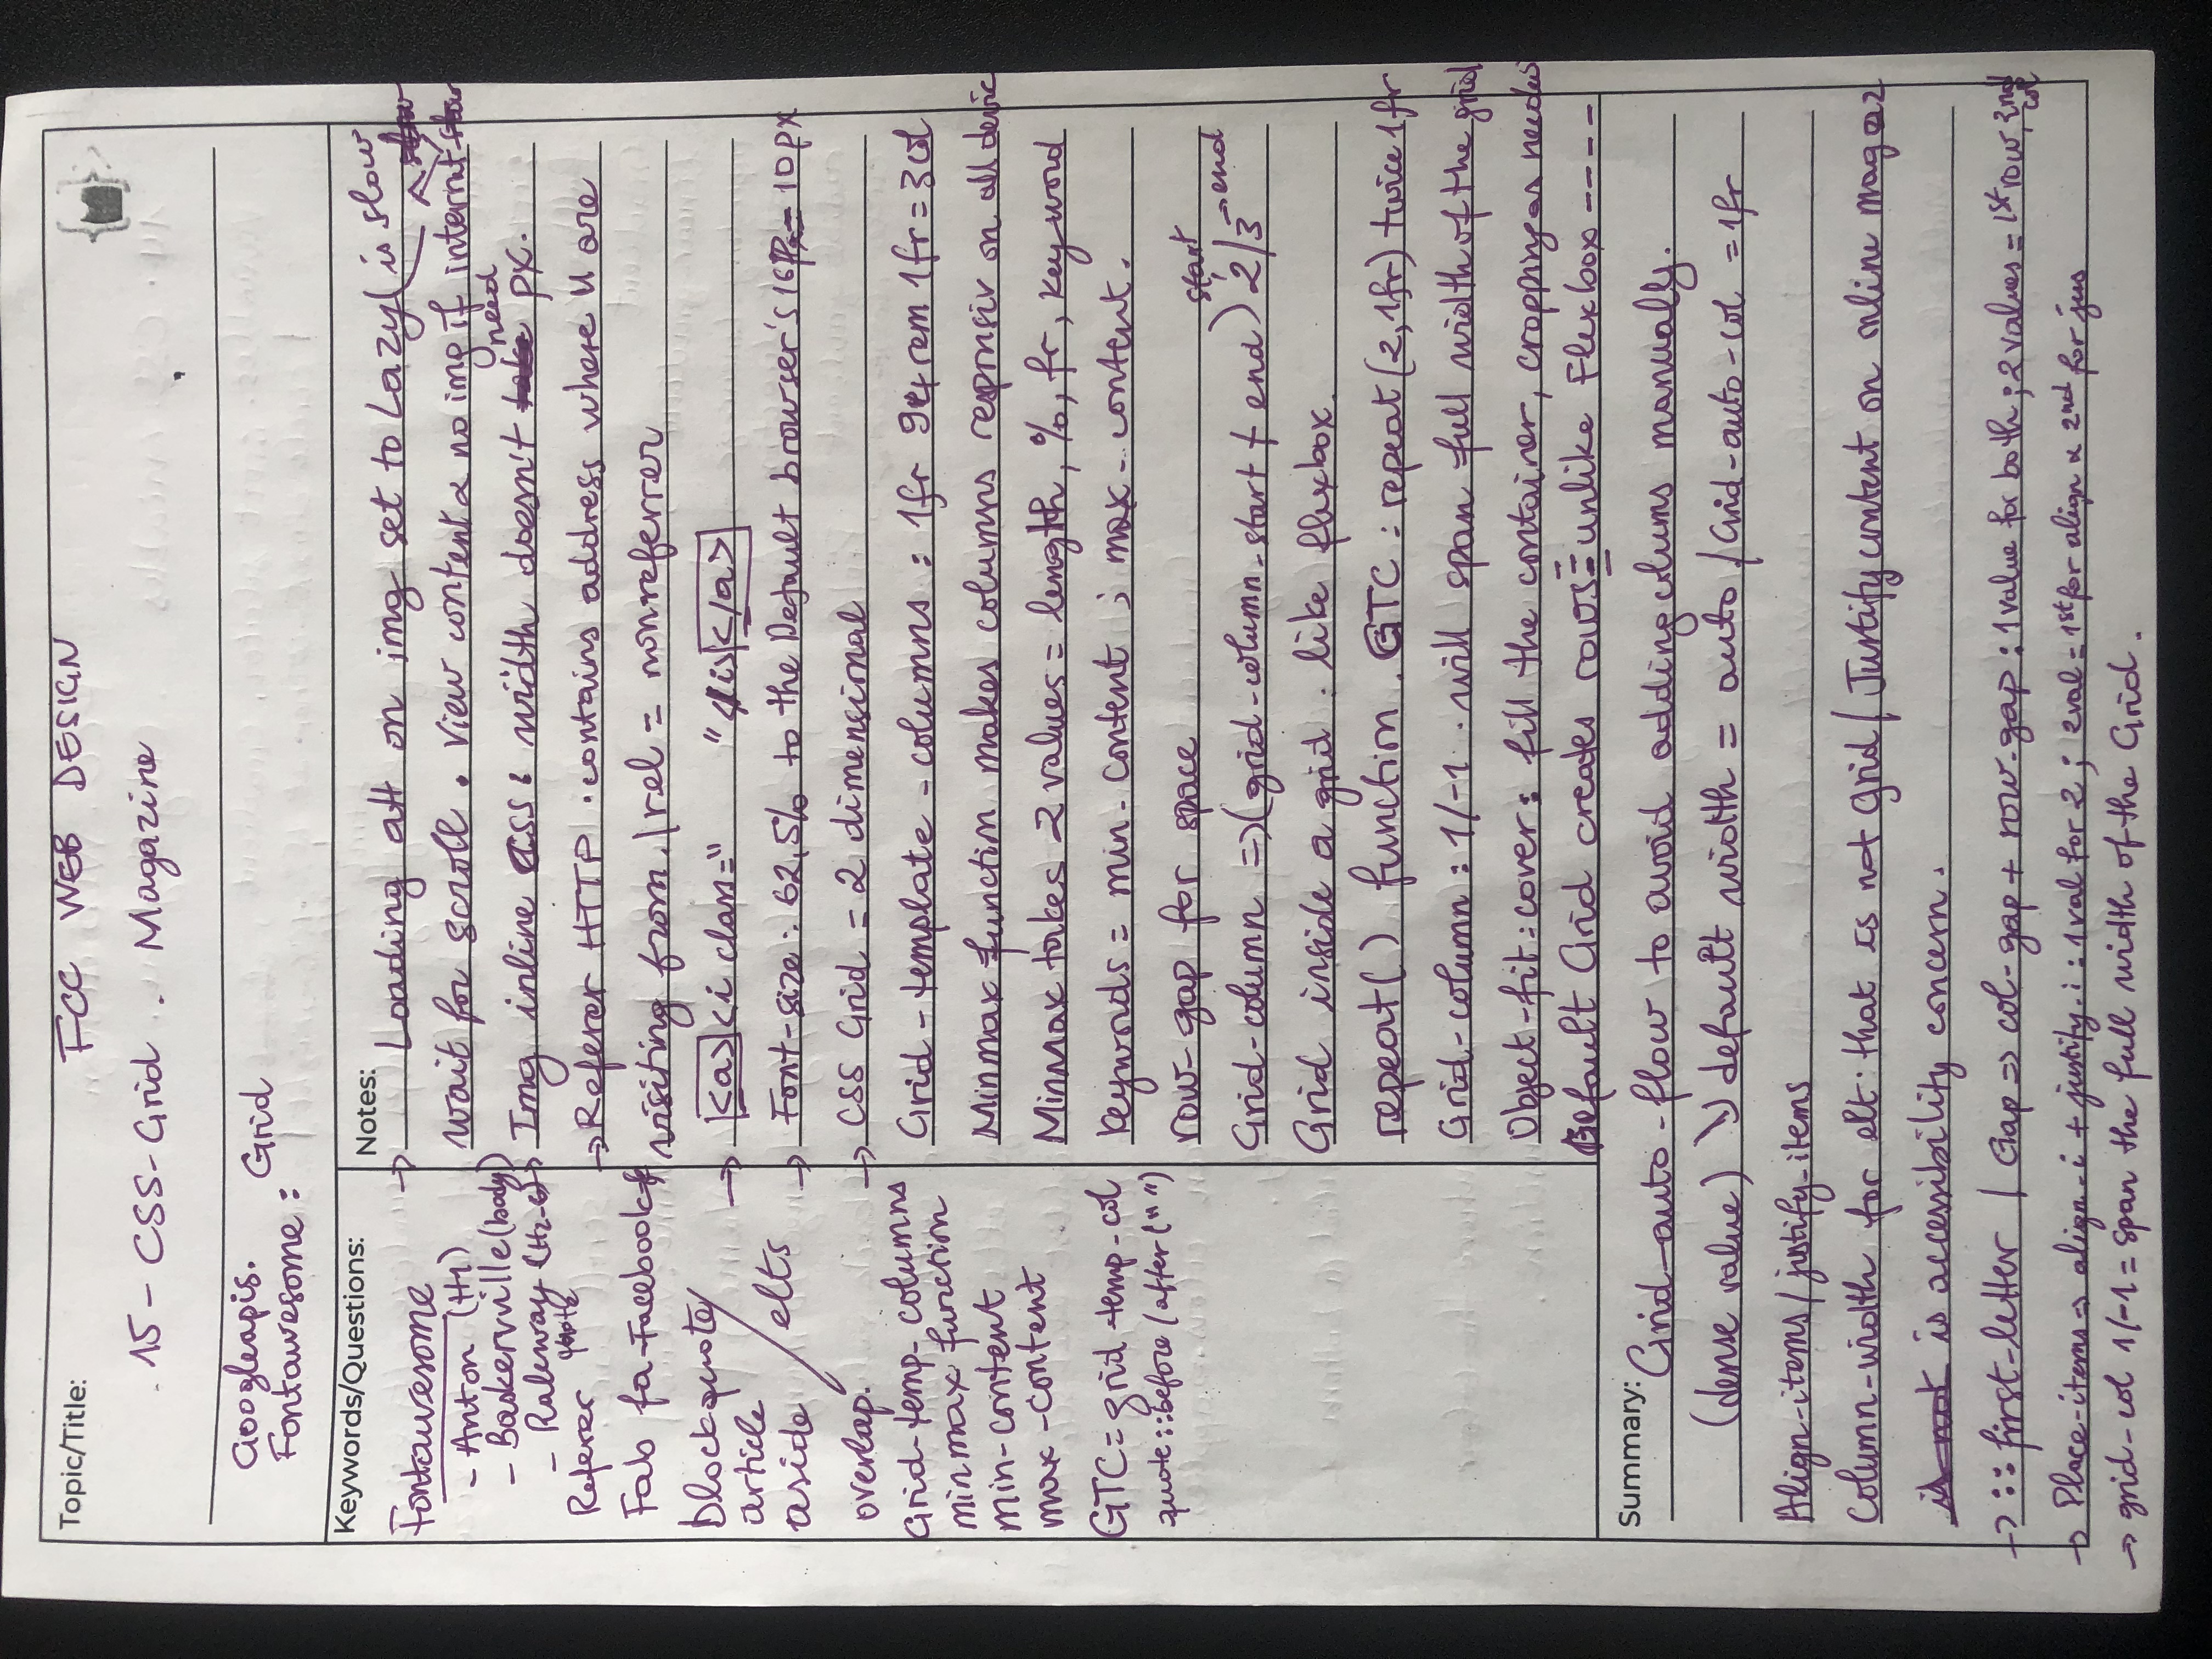 Topic/Title:
FCC WEB DESIGN
15 - CSS-Grid . Magazine
Googleapis.
Fontawesome : Grid
Keywords/Questions:
Fontawesome
- Anton (H1)
- Baskerville (body)
- Raleway (H2-6)
quote
Referer
Fab fa-Facebook-f
blockquote
article
aside
elts
overlap.
Grid-temp-columns
minmax function
min-content
max-content
GTC = grid-temp-col
quote::before/after (" ")
Notes:
→ Loading att on img set to Lazy ( is slow
wait for scroll . View content & no img if internet
Img inline CSS : width doesn't need px.
→ Referer HTTP . contains address where u are
visiting from. / rel = nonreferrer
→ <a> <i class=" " </i> </a>
→ Font-size : 62,5% to the Default browser's 16px = 10px
→ CSS Grid = 2 dimensional
Grid-template-columns : 1fr 94rem 1fr = 3 col
Minmax function makes columns responsiv on all devic
MinMax takes 2 values = length, %, fr, keyword
Keywords = min-content ; max-content.
row-gap for space
Grid-column => (grid-column-start + end) 2/3
start
→ end
Grid inside a grid . like flexbox.
repeat( ) function . GTC : repeat (2, 1fr) twice 1fr
Grid-column : 1/-1 . will span full width of the grid
Object-fit : cover : fill the container, cropping as needed
Default Grid creates rows unlike Flexbox ----
Summary:
Grid-auto-flow to avoid adding colums manually.
(dense value) default width = auto / Grid-auto-col = 1fr
Align-items / justify-items
Column-width for elt. that is not grid / Justify content on online magaz
is accessibility concern.
→ ::first-letter | Gap => col-gap + row-gap : 1 value for both ; 2 values = 1st row, 2nd col
→ Place-items => align-i + justify-i : 1 val for 2 ; 2 val = 1st for align & 2nd for jus
→ grid-col 1/-1 = span the full width of the Grid.